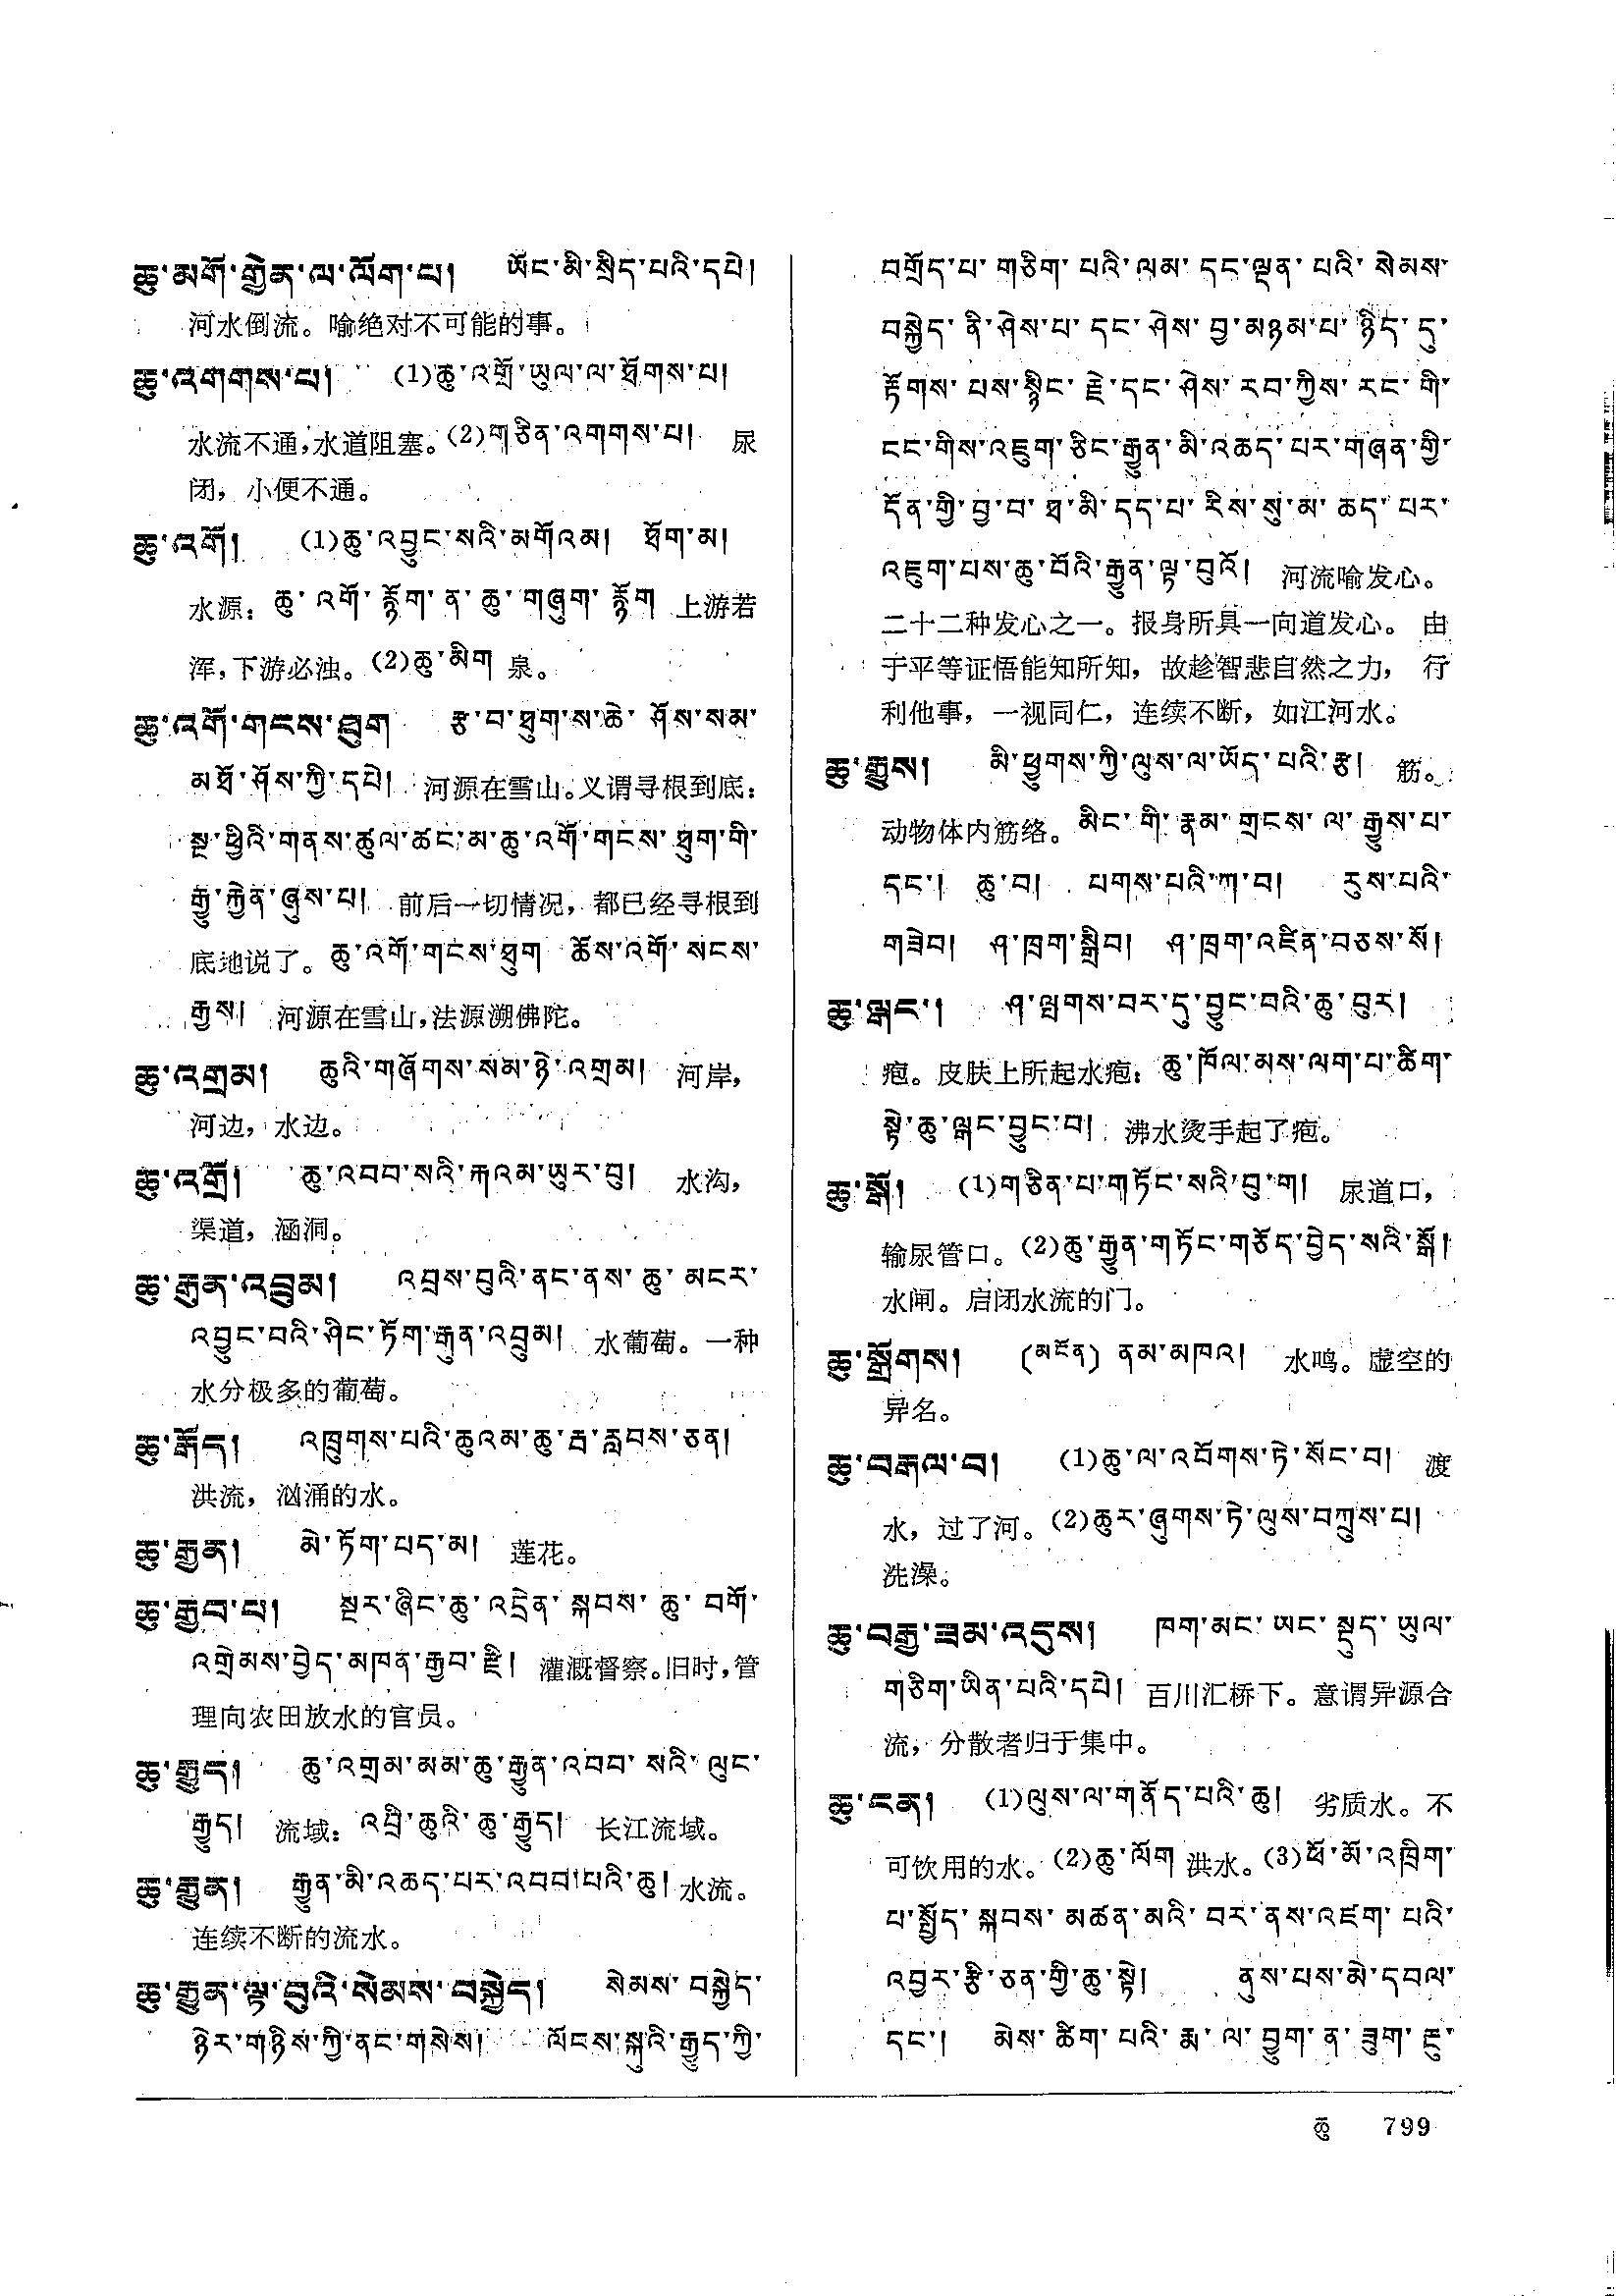 ཆུ་མགོ་གྱེན་ལ་ལོག་པ། ཡོང་མི་སྲིད་པའི་དཔེ།
河水倒流。喻绝对不可能的事。
ཆུ་འགགས་པ། (1)ཆུ་འགྲོ་ཡུལ་ལ་ཐོགས་པ།
水流不通,水道阻塞。(2)གཅིན་འགགས་པ། 尿
闭，小便不通。
ཆུ་འགོ། (1)ཆུ་འབྱུང་སའི་མགོའམ། ཐོག་མ།
水源：ཆུ་འགོ་རྙོག་ན་ཆུ་གཞུག་རྙོག 上游若
浑,下游必浊。(2)ཆུ་མིག 泉。
ཆུ་འགོ་གངས་ཐུག རྩ་བ་ཐུག་ས་ཆེ་ཤོས་སམ་
མཐོ་ཤོས་ཀྱི་དཔེ། 河源在雪山。义谓寻根到底：
སྔ་ཕྱིའི་གནས་ཚུལ་ཚང་མ་ཆུ་འགོ་གངས་ཐུག་གི་
རྒྱུ་རྐྱེན་ཞུས་པ། 前后一切情况，都已经寻根到
底地说了。ཆུ་འགོ་གངས་ཐུག ཆོས་འགོ་སངས་
རྒྱས། 河源在雪山,法源溯佛陀。
ཆུ་འགྲམ། ཆུའི་གཞོགས་སམ་ཉེ་འགྲམ། 河岸，
河边，水边。
ཆུ་འགྲོ། ཆུ་འབབ་སའི་རྐའམ་ཡུར་བུ། 水沟，
渠道，涵洞。
ཆུ་རྒུན་འབྲུམ། འབྲས་བུའི་ནང་ནས་ཆུ་མངར་
འབྱུང་བའི་ཤིང་ཏོག་རྒུན་འབྲུམ། 水葡萄。一种
水分极多的葡萄。
ཆུ་རྒོད། འཁྲུགས་པའི་ཆུའམ་ཆུ་རྦ་རླབས་ཅན།
洪流，汹涌的水。
ཆུ་རྒྱན། མེ་ཏོག་པད་མ། 莲花。
ཆུ་རྒྱབ་པ། སྔར་ཞིང་ཆུ་འདྲེན་སྐབས་ཆུ་བགོ་
འགྲེམས་བྱེད་མཁན་རྒྱབ་རྫི། 灌溉督察。旧时,管
理向农田放水的官员。
ཆུ་རྒྱུད། ཆུ་འགྲམ་མམ་ཆུ་རྒྱུན་འབབ་སའི་ལུང་
རྒྱུད། 流域：འབྲི་ཆུའི་ཆུ་རྒྱུད། 长江流域。
ཆུ་རྒྱུན། རྒྱུན་མི་འཆད་པར་འབབ་པའི་ཆུ། 水流。
连续不断的流水。
ཆུ་རྒྱུན་ལྟ་བུའི་སེམས་བསྐྱེད། སེམས་བསྐྱེད་
ཉེར་གཉིས་ཀྱི་ནང་གསེས། ལོངས་སྐུའི་རྒྱུད་ཀྱི་
བགྲོད་པ་གཅིག་པའི་ལམ་དང་ལྡན་པའི་སེམས་
བསྐྱེད་ནི་ཤེས་པ་དང་ཤེས་བྱ་མཉམ་པ་ཉིད་དུ་
རྟོགས་པས་སྙིང་རྗེ་དང་ཤེས་རབ་ཀྱིས་རང་གི་
ངང་གིས་འཇུག་ཅིང་རྒྱུན་མི་འཆད་པར་གཞན་གྱི་
དོན་གྱི་བྱ་བ་ཐ་མི་དད་པ་རིས་སུ་མ་ཆད་པར་
འཇུག་པས་ཆུ་བོའི་རྒྱུན་ལྟ་བུའོ། 河流喻发心。
二十二种发心之一。报身所具一向道发心。由
于平等证悟能知所知，故趁智悲自然之力，行
利他事，一视同仁，连续不断，如江河水。
ཆུ་རྒྱུས། མི་ཕྱུགས་ཀྱི་ལུས་ལ་ཡོད་པའི་རྩ། 筋。
动物体内筋络。མིང་གི་རྣམ་གྲངས་ལ་རྒྱུས་པ་
དང་། ཆུ་བ། པགས་པའི་ཀ་བ། རུས་པའི་
གཟེབ། ཤ་ཁྲག་སྒྲིབ། ཤ་ཁྲག་འཛིན་བཅས་སོ།
ཆུ་ལྒང་། ཤ་ལྤགས་བར་དུ་བྱུང་བའི་ཆུ་བུར།
疱。皮肤上所起水疱：ཆུ་ཁོལ་མས་ལག་པ་ཚིག་
སྟེ་ཆུ་ལྒང་བྱུང་བ། 沸水烫手起了疱。
ཆུ་སྒོ། (1)གཅིན་པ་གཏོང་སའི་བུ་ག། 尿道口，
输尿管口。(2)ཆུ་རྒྱུན་གཏོང་གཅོད་བྱེད་སའི་སྒོ།
水闸。启闭水流的门。
ཆུ་སྒྲོགས། (མངོན) ནམ་མཁའ། 水鸣。虚空的
异名。
ཆུ་བརྒལ་བ། (1)ཆུ་ལ་འབོགས་ཏེ་སོང་བ། 渡
水，过了河。(2)ཆུར་ཞུགས་ཏེ་ལུས་བཀྲུས་པ།
洗澡。
ཆུ་བརྒྱ་ཟམ་འདུས། ཁག་མང་ཡང་སྡུད་ཡུལ་
གཅིག་ཡིན་པའི་དཔེ། 百川汇桥下。意谓异源合
流，分散者归于集中。
ཆུ་ངན། (1)ལུས་ལ་གནོད་པའི་ཆུ། 劣质水。不
可饮用的水。(2)ཆུ་ལོག 洪水。(3)ཕོ་མོ་འཁྲིག་
པ་སྤྱོད་སྐབས་མཚན་མའི་བར་ནས་འཛག་པའི་
འབྱར་རྩི་ཅན་གྱི་ཆུ་སྟེ། ནུས་པས་མེ་དབལ་
དང་། མེས་ཚིག་པའི་རྨ་ལ་བྱུག་ན་ཟུག་རྔུ་
ཆུ 799